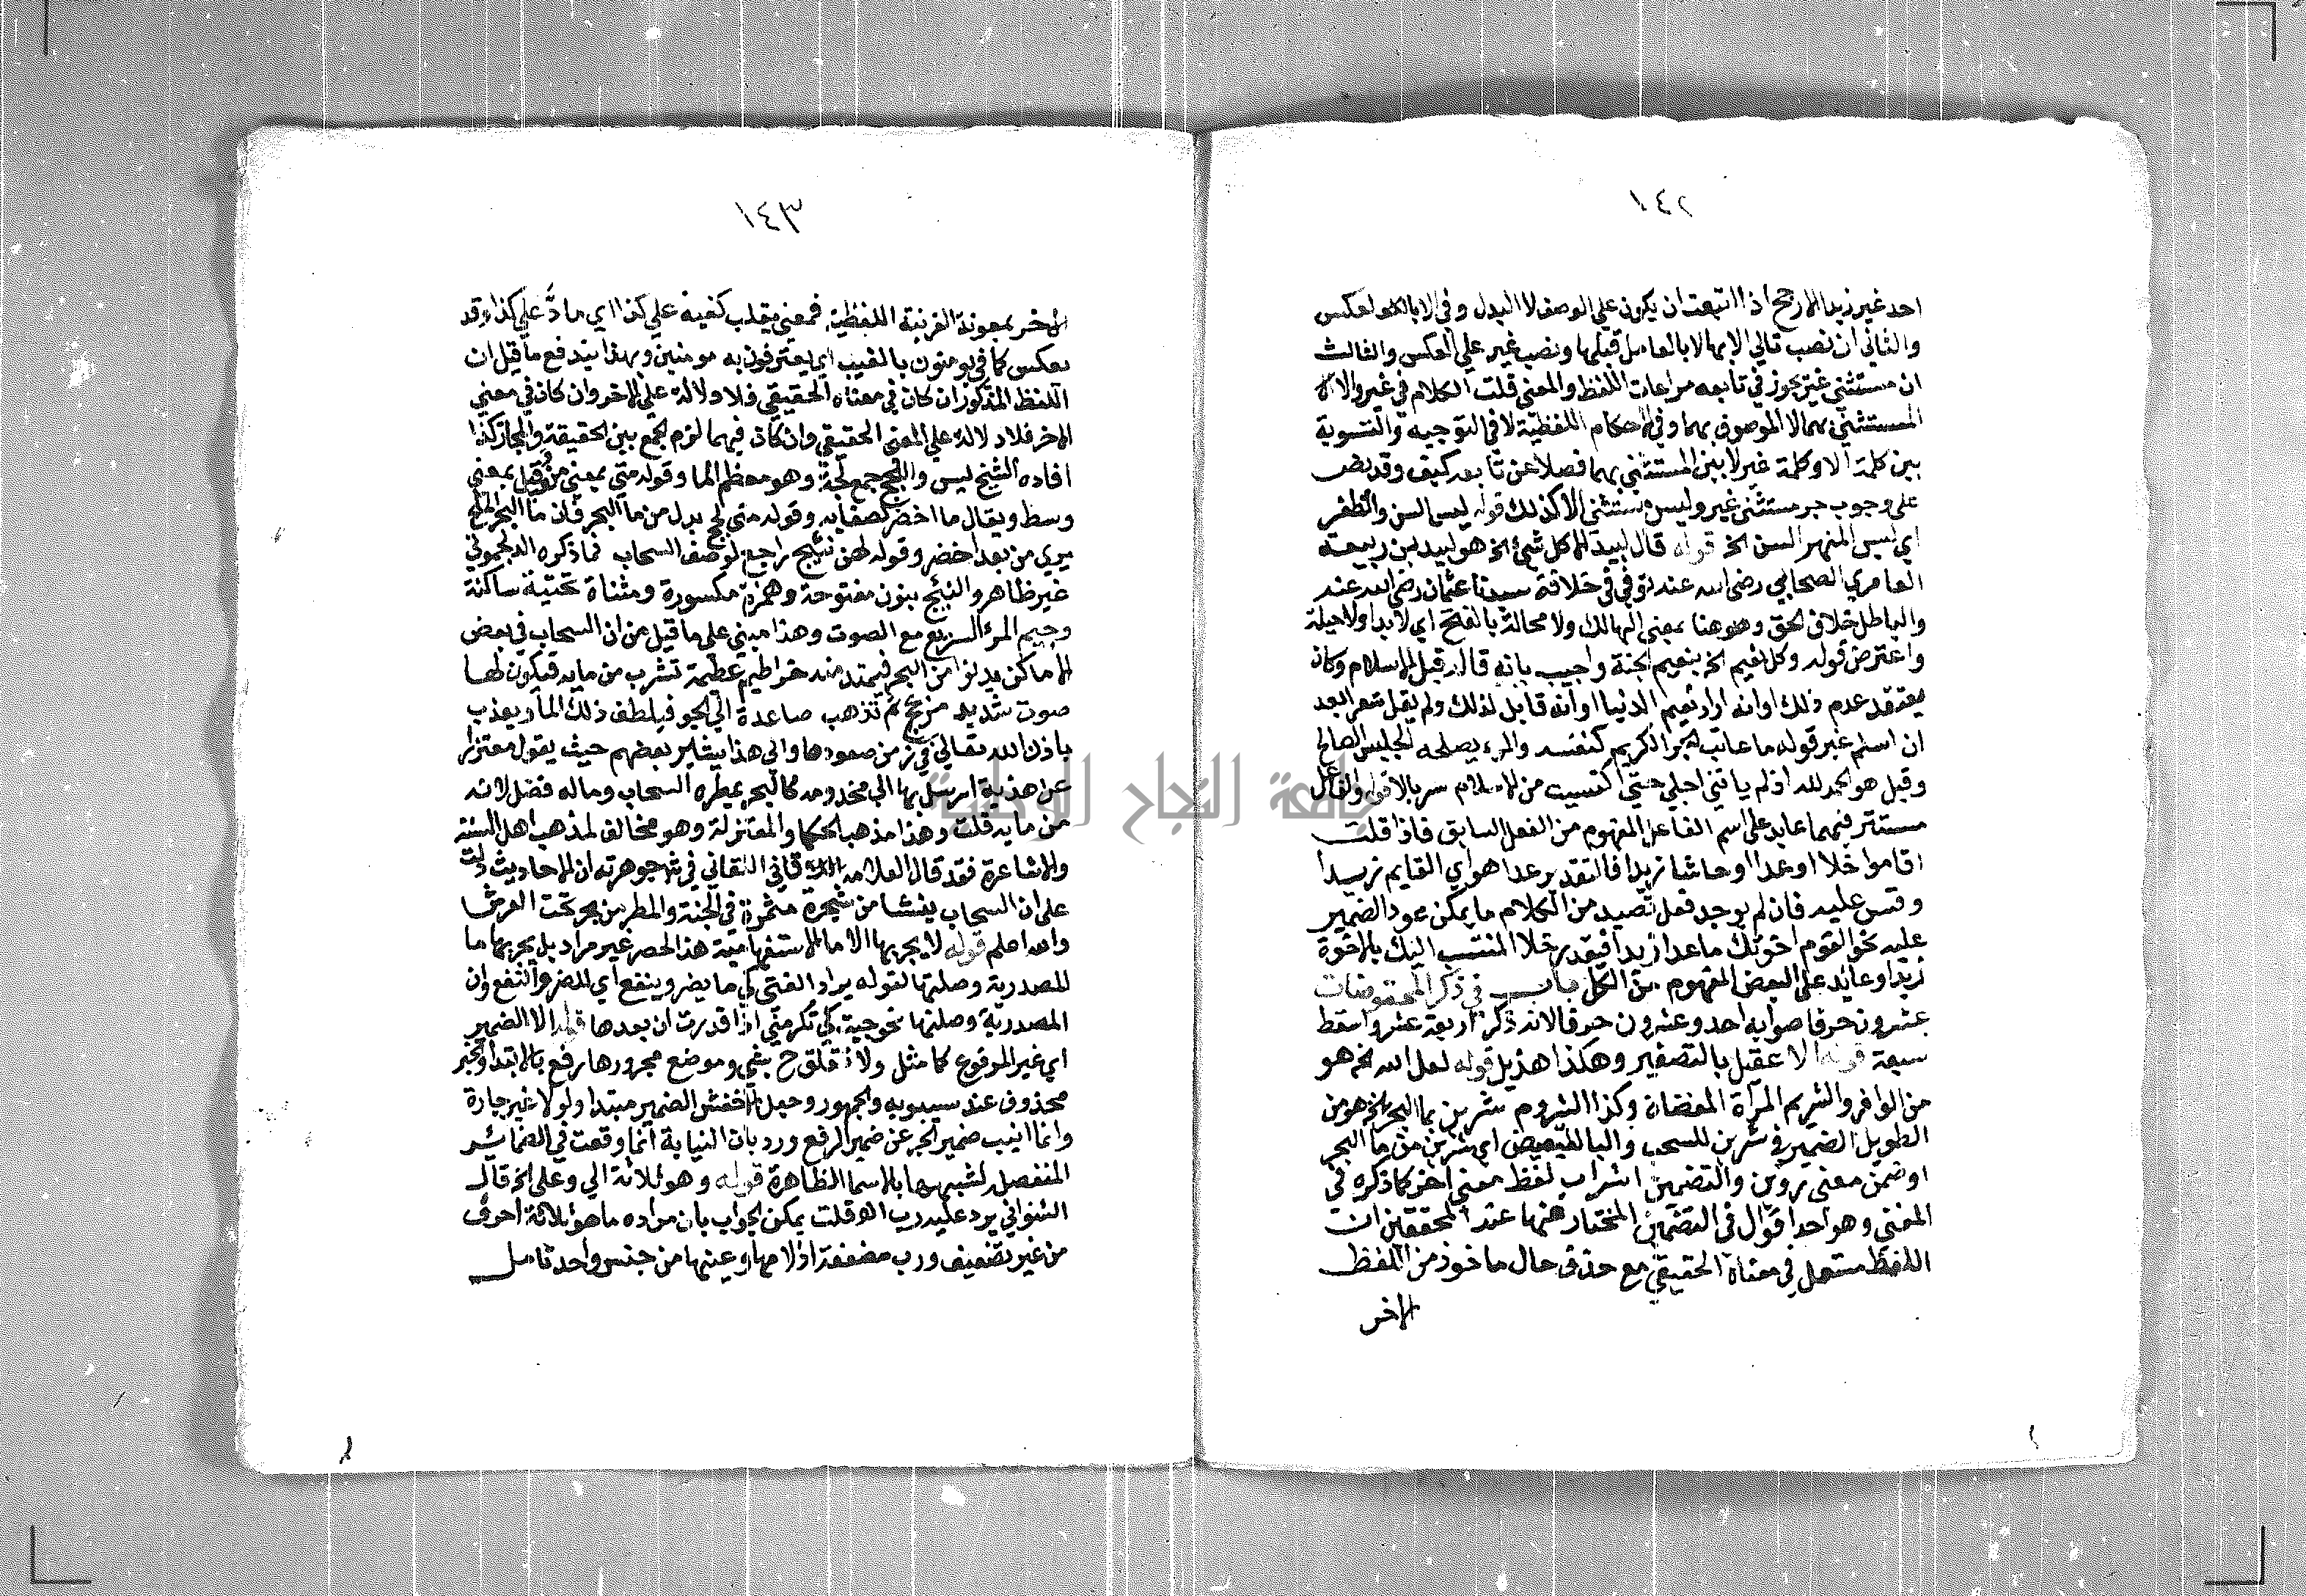 ١٤٢
احد غير زيد الارجح اذا اتبعت ان يكون علي الوصف لا البدل وفي الا بالعكس
والثاني ان نصب تالي الا بها لا بالعامل قبلها ونصب غير علي العكس والثالث
ان مستثني غير يجوز في تابعه مراعات اللفظ والمعني قلت الكلام في غير والا
المستثني بهما لا الموصوف بهما وفي الاحكام اللفظية لا في التوجيه والتسوية
بين كلمة الا وكلمة غير لا بين المستثني بهما فضلا عن تابعه كيف وقد نص
علي وجوب جر مستثني غير وليس مستثني الا كذلك قوله ليس السن والظفر
اي ليس المنهر السن الخ قوله قال لبيد الا كل شئ الخ هو لبيد بن ربيعة
العامري الصحابي رضي الله عنه توفي في خلافة سيدنا عثمان رضي الله عنه
والباطل خلاف الحق وهو هنا بمعني الهالك ولا محالة بالفتح اي لا بد او لا حيلة
واعترض قوله وكل نعيم الخ بنعيم الجنة واجيب بانه قاله قبل الاسلام وكان
يعتقد عدم ذلك او انه اراد نعيم الدنيا او انه قابل لذلك ولم يقل شعرا بعد
ان اسلم غير قوله ما عاتب الحر الكريم كنفسه والمرء يصلحه الجليس الصالح
وقيل هو الحمد لله اذ لم ياتني اجلي حتي اكتسيت من الاسلام سربالا قوله والفاعل
مستتر فيهما عايد علي اسم الفاعل المفهوم من الفعل السابق فاذا قلت
اقاموا خلا او عدا او حاشا زيدا فالتقدير عدا هو اي القايم زيدا
وقس عليه فان لم يوجد فعل تصيد من الكلام ما يمكن عود الضمير
عليه نحو القوم اخوتك ما عدا زيدا فيقدر خلا المنتسب اليك بالاخوة
زيدا وعائد علي البعض المفهوم من الكل باب في ذكر المخفوضات
عشرون حرفا صوابه احد وعشرون حرفا لانه ذكر اربعة عشر واسقط
سبعة قوله الا عقيل بالتصغير وهكذا هذيل قوله لعل الله الخ هو
من الوافر والشريم المرأة المفضاة وكذا الشروم شربن بما البحر الخ هو من
الطويل الضمير في شربن للسحب والبا للتبعيض اي شربن من ما البحر
او ضمن معني روين والتضمين اشراب لفظ معني اخر كما ذكره في
المغني وهو احد اقوال في التضمين المختار منها عند المحققين ان
اللفظ مستعمل في معناه الحقيقي مع حذف حال ماخوذ من اللفظ
الاخر
١٤٣
الاخر بمعونة القرينة اللفظية فمعني يقلب كفيه علي كذا اي مادا علي كذا وقد
يعكس كما في يومنون بالغيب اي يعترفون به مومنين وبهذا يندفع ما قيل ان
اللفظ المذكور ان كان في معناه الحقيقي فلا دلالة علي الاخر وان كان في معني
الاخر فلا دلالة علي المعني الحقيقي وان كان فيهما لزم الجمع بين الحقيقة والمجاز كذا
افاده الشيخ يس واللجج جمع لجة وهو معظم الما وقوله متي بمعني من وقيل بمعني
وسط ويقال ما اخضر لصفايه وقوله متي لجج بدل من ما البحر فان ما البحر الملح
يري من بعد اخضر وقوله لهن نئيج راجع لوصف السحاب فما ذكره الدلجموني
غير ظاهر والنئيج بنون مفتوحة وهمزة مكسورة ومثناة تحتية ساكنة
وجيم المر السريع مع الصوت وهذا مبني علي ما قيل من ان السحاب في بعض
الاماكن يدنوا من البحر فيمتد منه خراطيم عظيمة تشرب من مايه فيكون لها
صوت شديد مزعج ثم تذهب صاعدة الي الجو فيلطف ذلك الما ويعذب
باذن الله تعالي في زمن صعودها والي هذا يشير بعضهم حيث يقول معتزلا
عن هدية ارسل بها الي مخدومه كالبحر يمطره السحاب وماله فضل لانه
من مايه قلت وهذا مذهب الحكما والمعتزلة وهو مخالف لمذهب اهل السنة
والاشاعرة فقد قال العلامه اللقاني في شرح جوهرته ان الاحاديث دلت
علي ان السحاب ينشا من شجرة مثمرة في الجنة والمطر من بحر تحت العرش
والله اعلم قوله لا يجر بها الا ما الاستفهامية هذا الحصر غير مراد بل يجر بها ما
المصدرية وصلتها لقوله يراد الفتي كي ما يضر وينفع اي للضر والنفع وان
المصدرية وصلتها نحو جيت كي تكرمني اذا قدرت ان بعدها قوله الا الضمير
اي غير المرفوع كما مثل ولا تتعلق ح بشي وموضع مجرورها رفع بالابتدا والخبر
محذوف عند سيبويه والجمهور وجعل الاخفش الضمير مبتدا ولولا غير جارة
وانما انيب ضمير الجر عن ضمير الرفع ورد بان النيابة انما وقعت في الضمائر
المنفصلة لشبهها بالاسما الظاهرة قوله وهو ثلاثة الي وعلي الخ قال
الشنواني يرد عليه رب الا قلت يمكن الجواب بان مراده ما هو ثلاثة احرف
من غير تضعيف ورب مضعفة اذ لامها وعينها من جنس واحد تامل
جامعة النجاح الوطنية